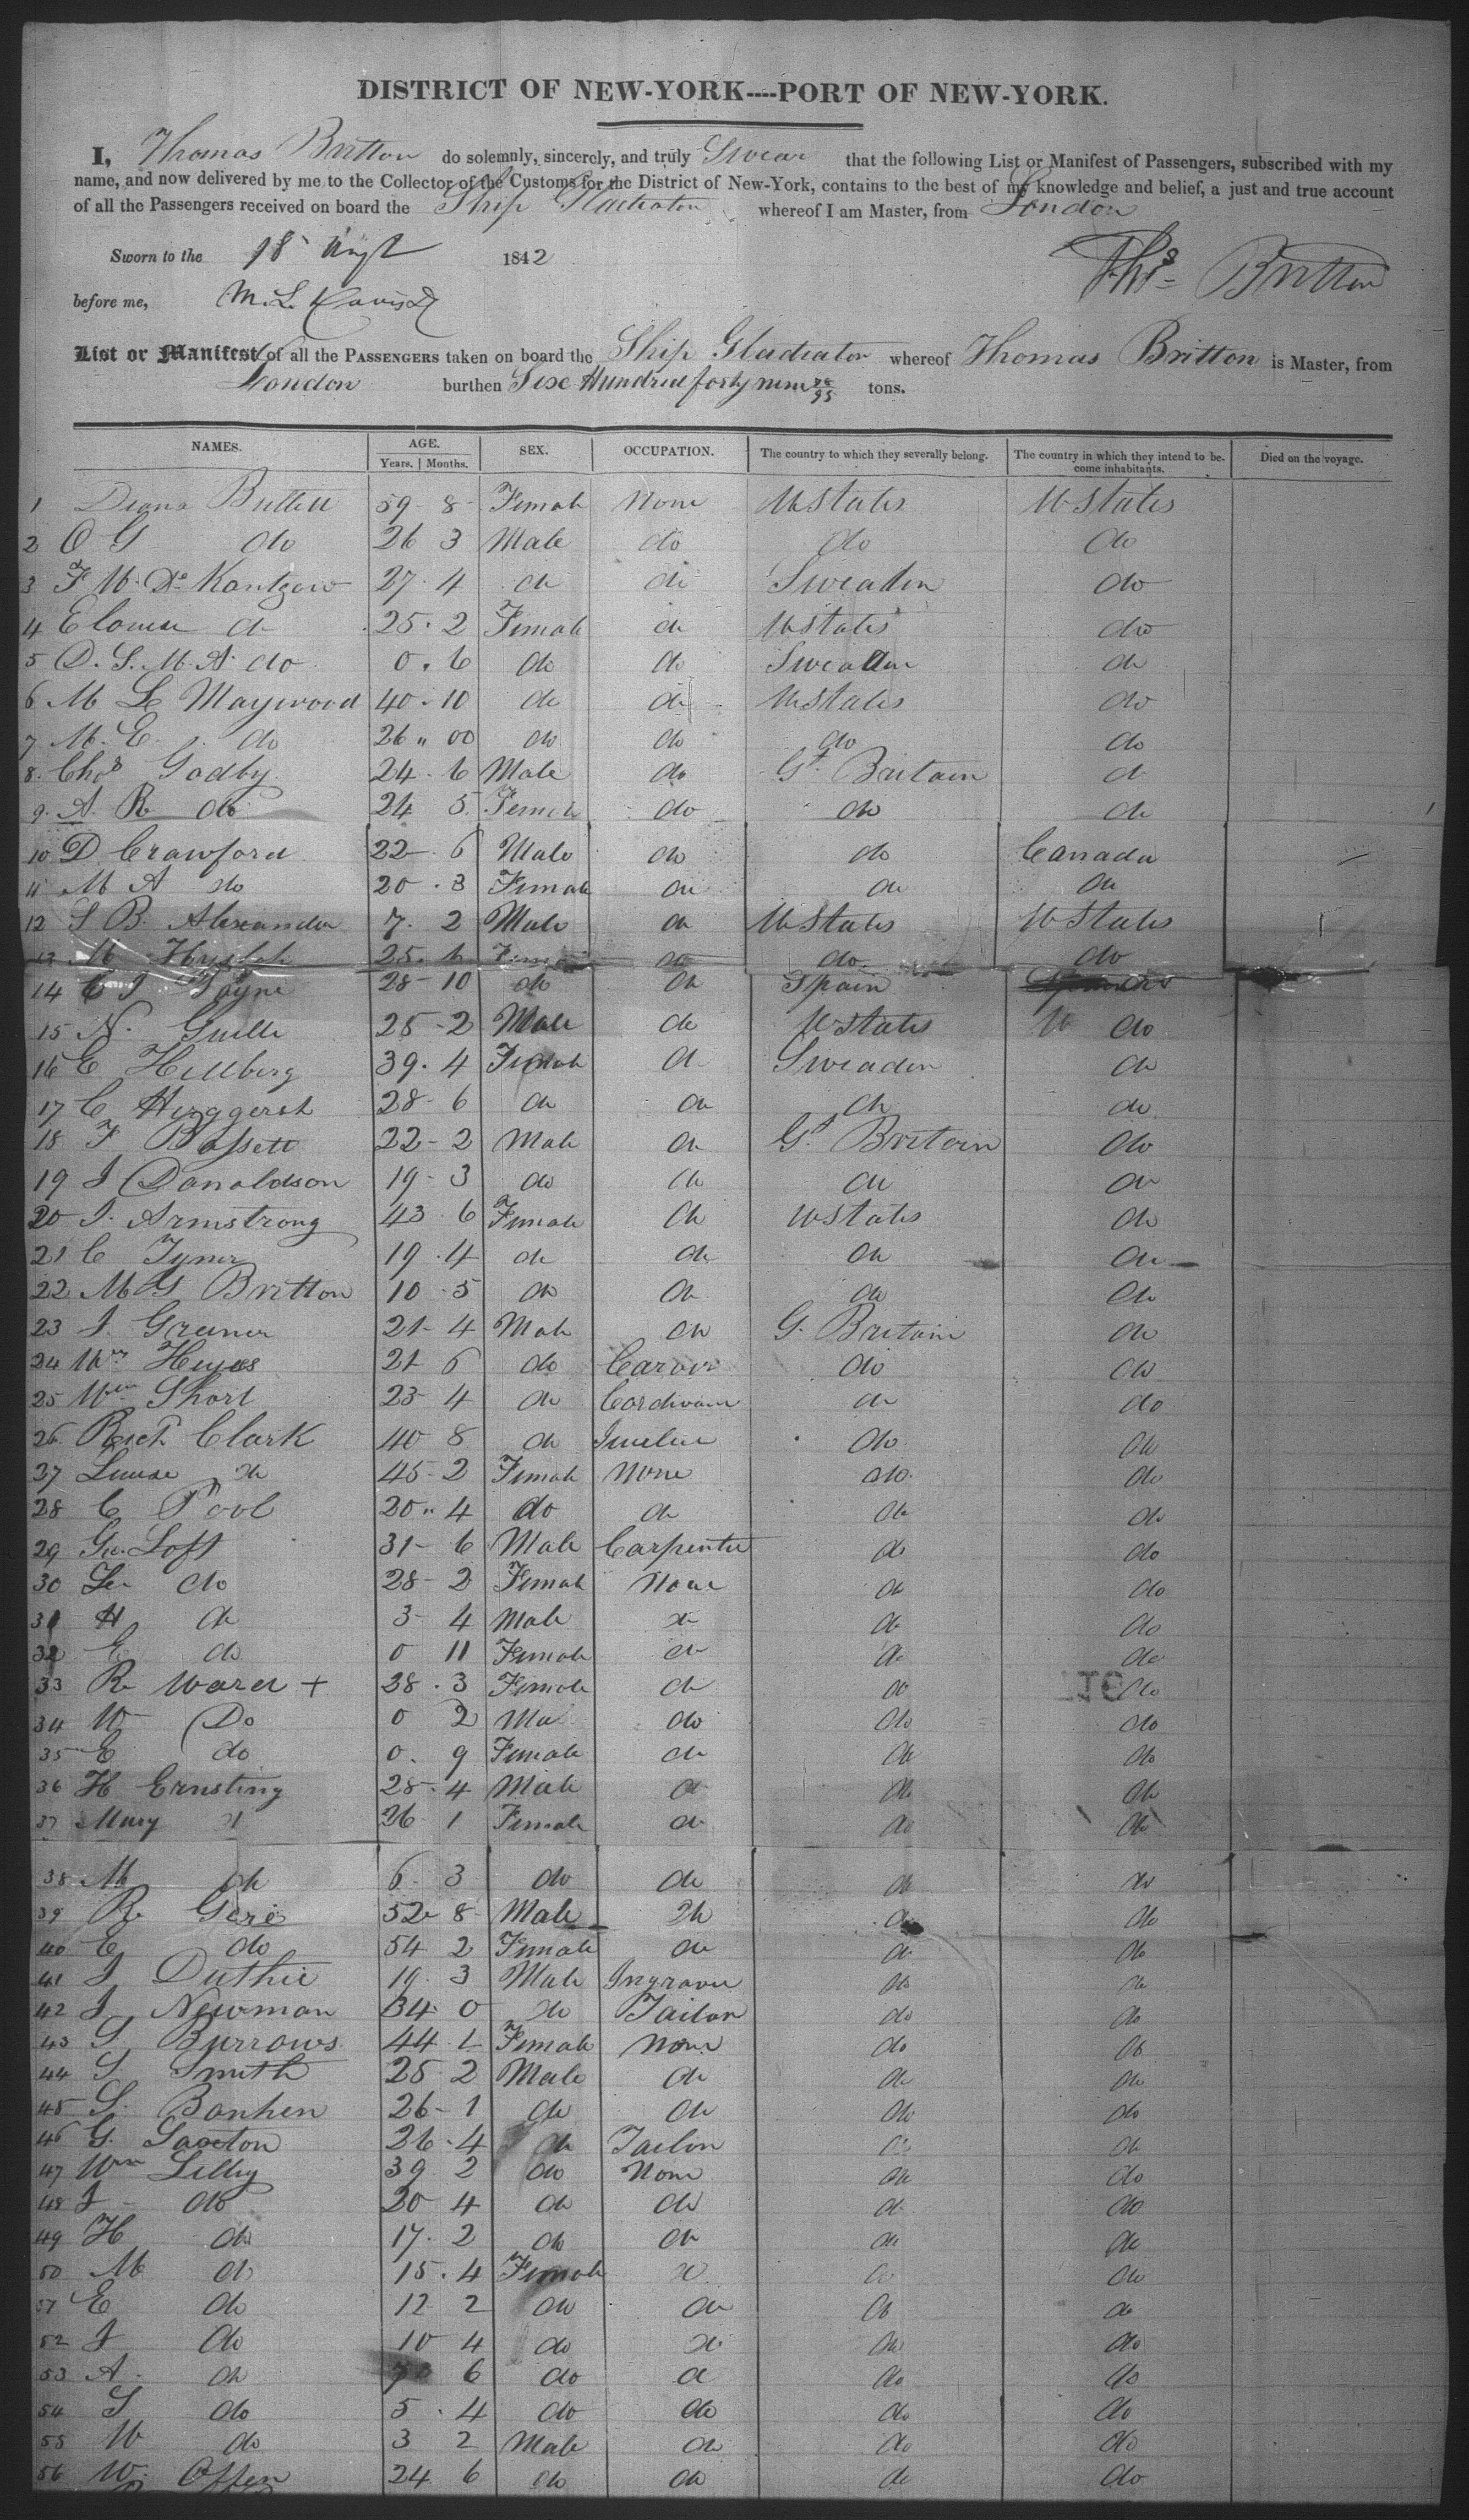 DISTRICT OF NEW-YORK----PORT OF NEW-YORK.
I, Thomas Britton do solemnly, sincerely, and truly Swear that the following List or Manifest of Passengers, subscribed with my
name, and now delivered by me to the Collector of the Customs for the District of New-York, contains to the best of my knowledge and belief, a just and true account
of all the Passengers received on board the Ship Gladiator whereof I am Master, from London
Sworn to the 18 Augt 1842
Thos Britton
before me, M. L. Davis
List or Manifest of all the PASSENGERS taken on board the Ship Gladiator whereof Thomas Britton is Master, from
London burthen Six Hundred forty nine /95 tons.
NAMES. AGE. SEX. OCCUPATION. The country to which they severally belong. The country in which they intend to be- Died on the voyage.
Years. | Months. come inhabitants.
1 Diana 59 8 Female None UStates UStates
2 O G do 26 3 Male do do do
3 F U De Kantzow 27 4 do do Sweaden do
4 Elouise do 25 2 Female do UStates do
5 D. S. M. A do 0 6 do do Sweaden do
6 M L Maywood 40 10 do do UStates do
7 M. E. do 26 00 do do do do
8 Chas Godby 24 6 Male do Gt Britain do
9 A R do 24 5 Female do do do
10 D Crawford 22 6 Male do do Canada
11 M A do 20 3 Female do do do
12 S B Alexander 7 2 Male do UStates UStates
13 M 25 6 Female do do do
14 C J Payne 28 10 do do Spain
15 N. Guille 25 2 Male do UStates U do
16 E Hellberg 39 4 Female do Sweaden do
17 C 28 6 do do do do
18 F Bassett 22 2 Male do Gt Britain do
19 J Donaldson 19 3 do do do do
20 J. Armstrong 43 6 Female do UStates do
21 C 19 4 do do do do
22 M G Britton 10 5 do do do do
23 J. 21 4 Male do G. Britain do
24 Wm 21 6 do Carver do do
25 Wm Short 23 4 do do do
26 Richd Clark 40 8 do do do
27 Louisa do 45 2 Female None do do
28 C Pool 20 4 do do do do
29 Geo. Loft 31 6 Male Carpenter do do
30 do 28 2 Female None do do
31 H do 3 4 Male do do do
32 E do 0 11 Female do do do
33 R Ward + 28 3 Female do do do
34 W Do 0 2 Ma do do do
35 E do 0 9 Female do do do
36 H Ernsting 28 4 Male do do do
37 Mary d 26 1 Female do do do
38 M do 6 3 do do do do
39 R 52 8 Male do do do
40 E do 54 2 Female do do do
41 J Duthie 19 3 Male Ingraver do do
42 J Newman 34 0 do Tailor do do
43 S Burrows 44 1 Female None do do
44 S Smith 25 2 Male do do do
45 S. Banhen 26 1 do do do do
46 G. Saxton 26 4 do Tailor do do
47 Wm Lilley 39 2 do None do do
48 J do 20 4 do do do do
49 H do 17 2 do do do do
50 M do 15 4 Female do do do
51 E do 12 2 do do do do
52 J do 10 4 do do do do
53 A. do 7 6 do do do do
54 S do 5 4 do do do do
55 W do 3 2 Male do do do
56 W. Offen 24 6 do do do do